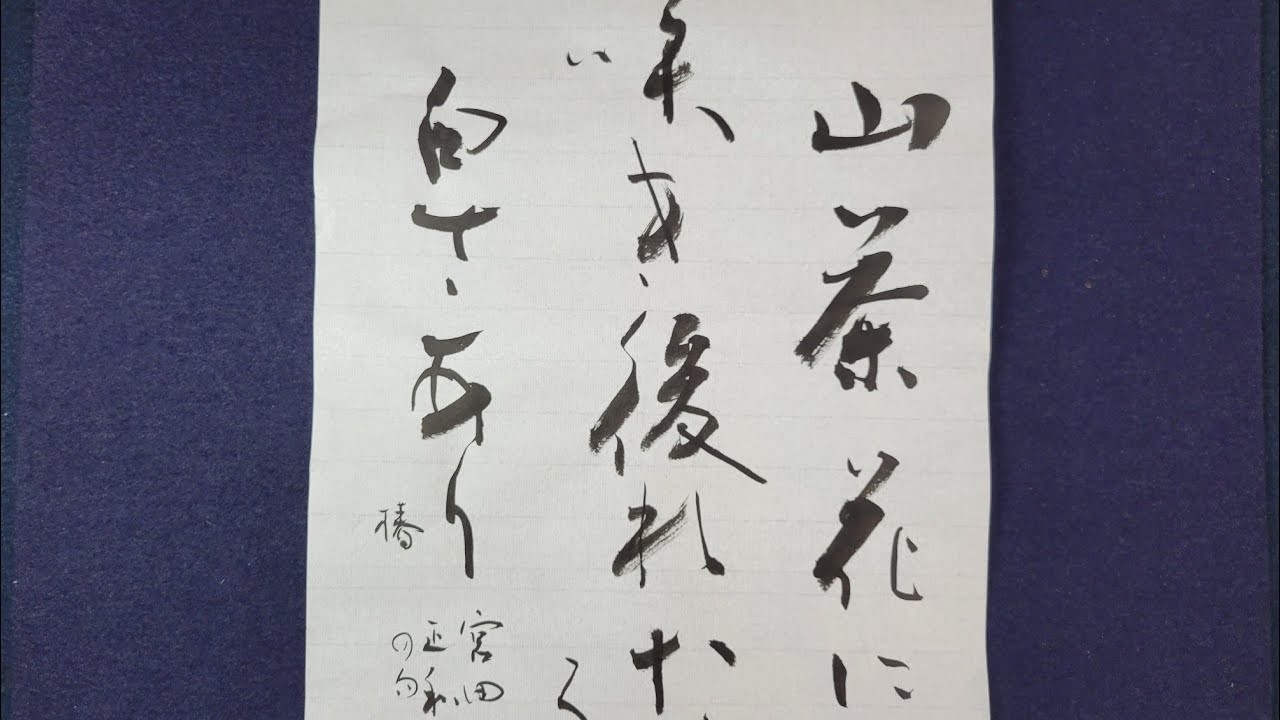 山茶花に
咲き後れた
白さあり
宮田
正和
の句
椿